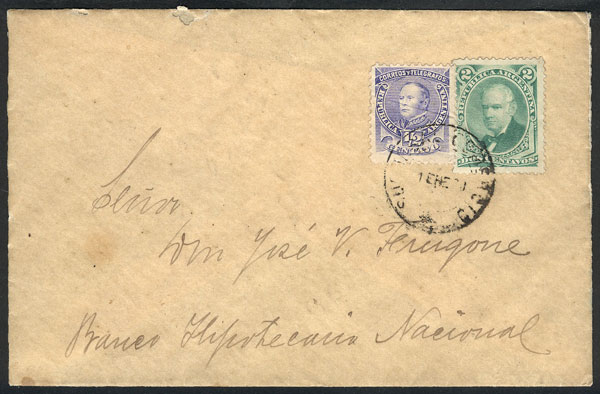 CORREOS Y TELEGRAFOS
REPUBLICA ARGENTINA
12
CENTAVOS
2 2
REPUBLICA ARGENTINA
DOS CENTAVOS
1 ENE
Señor
Don José V. Ferugone
Banco Hipotecario Nacional